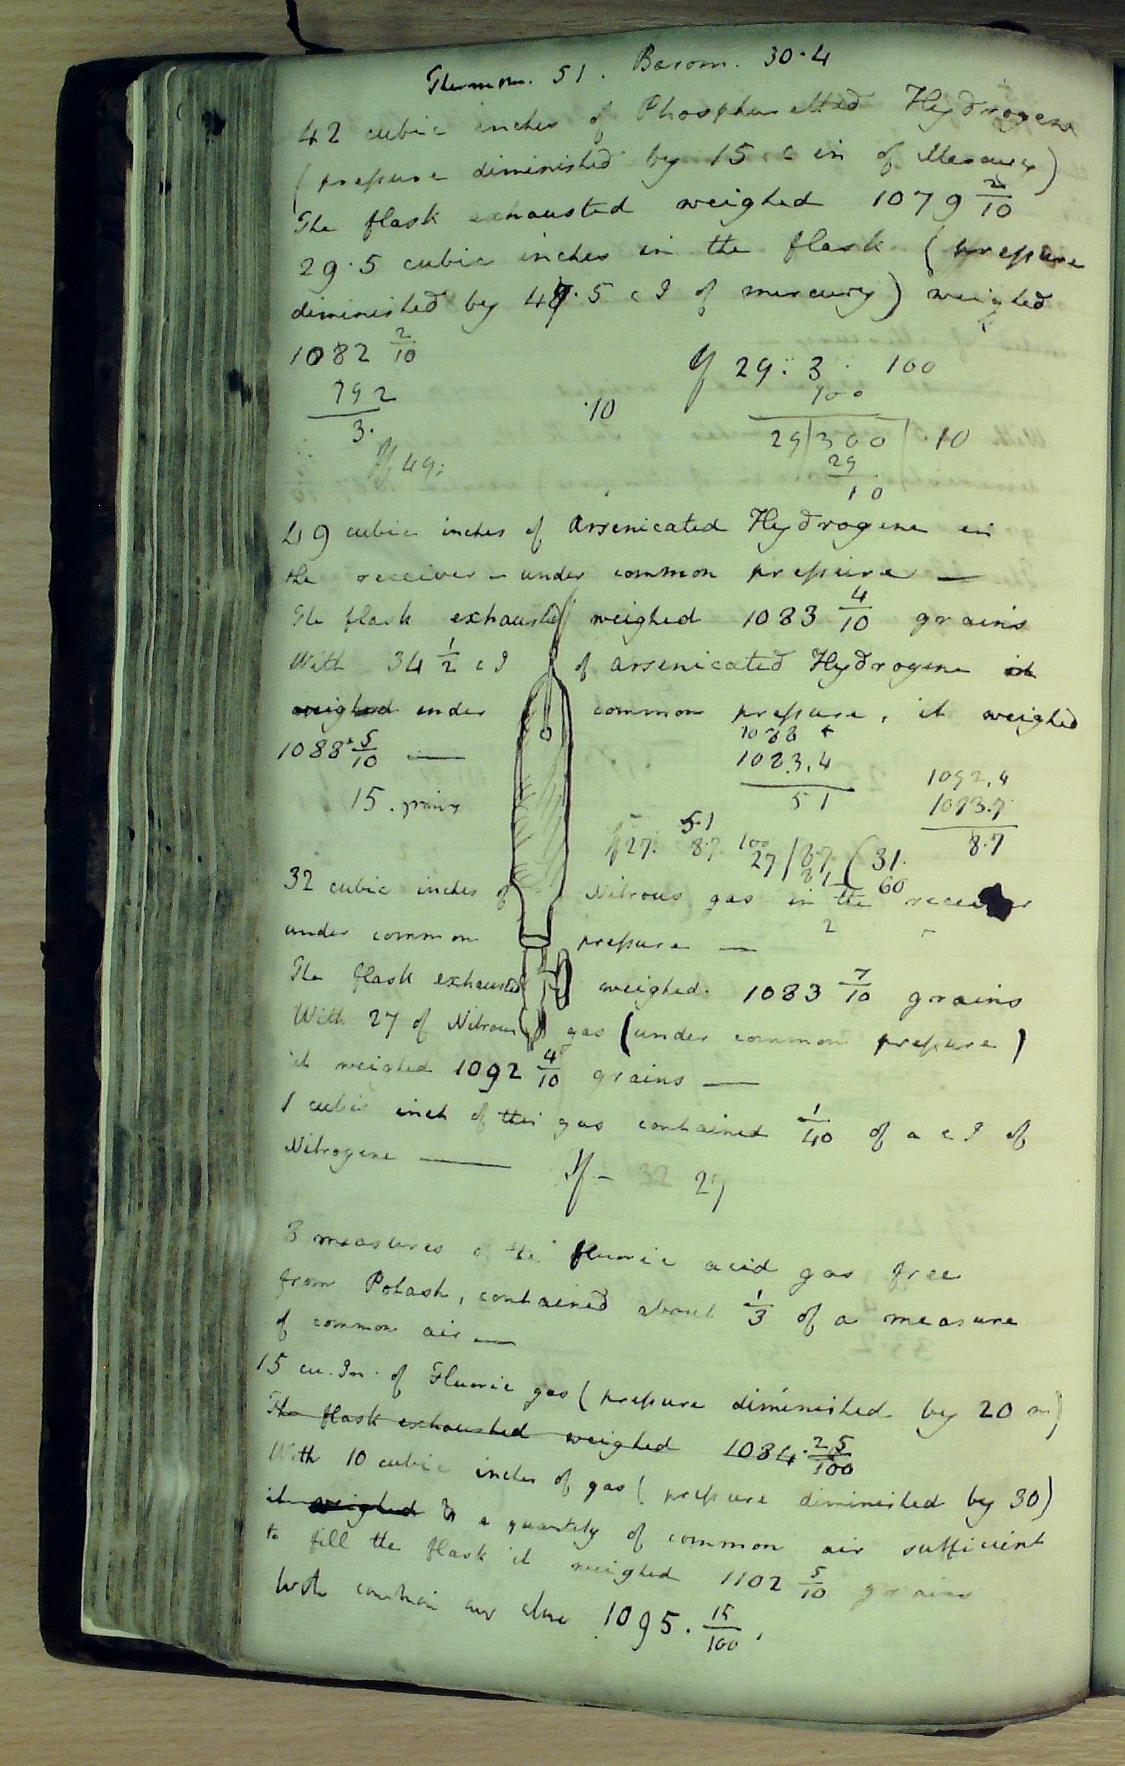 Thermom. 51. Barom. 30.4
42 cubic inches of Phosphuretted Hydrogene
(pressure diminished by 15 c in of Mercury)
The flask exhausted weighed 1079 2/10
29.5 cubic inches in the flask (pressure
diminished by 47.5 c I of mercury) weighed
1082 2/10
79 2
3.
.10
If 29 : 3 : 100
100
29 | 300 | 10
29
10
If 49:
49 cubic inches of Arsenicated Hydrogene in
the receiver - under common pressure —
The flask exhausted weighed 1083 4/10 grains
With 34 1/2 c I of arsenicated Hydrogene it
weighed under common pressure, it weighed
1088 5/10 —
1088 4
1083.4
51
15. grains
1092.4
1083.7
8.7
5.1
If 27: 8.7 100
27 / 87 ( 31.
81
60
32 cubic inches of Nitrous gas in the receiver
under common pressure —
2
The flask exhausted weighed. 1083 7/10 grains
With 27 of Nitrous gas (under common pressure)
it weighed 1092 4/10 grains —
1 cubic inch of this gas contained 1/40 of a c I of
Nitrogene —
If - 32 27
3 measures of the fluoric acid gas free
from Potash, contained about 1/3 of a measure
of common air —
15 cu. In. of Fluoric gas (pressure diminished by 20 m)
The flask exhausted weighed 1084. 25/100
With 10 cubic inches of gas (pressure diminished by 30)
it weighed & a quantity of common air sufficient
to fill the flask it weighed 1102 5/10 grains
With common air alone 1095. 15/100.